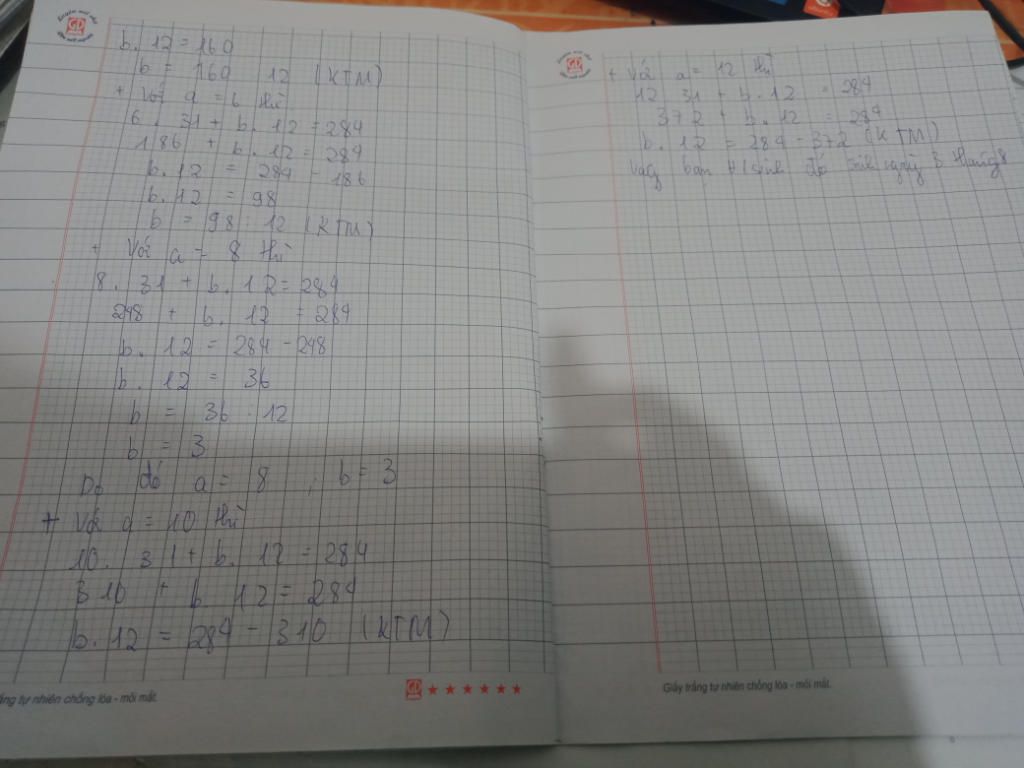 b. 12 = 160
b = 160 12 (KTM)
+ Với a = 6 thì
6. 31 + b. 12 = 284
186 + b. 12 = 284
b. 12 = 284 - 186
b. 12 = 98
b = 98 : 12 (KTM)
+ Với a = 8 thì
8. 31 + b. 12 = 284
248 + b. 12 = 284
b. 12 = 284 - 248
b. 12 = 36
b = 36 : 12
b = 3
Do đó a = 8 ; b = 3
+ Với a = 10 thì
10. 31 + b. 12 = 284
310 + b 12 = 284
b. 12 = 284 - 310 (KTM)
trắng tự nhiên chống lóa - mỏi mắt.
+ Với a = 12 thì
12 31 + b. 12 = 284
372 + b. 12 = 284
b. 12 = 284 - 372 (KTM)
Vậy bạn sinh đó sinh ngày 3 tháng 8
Giấy trắng tự nhiên chống lóa - mỏi mắt.